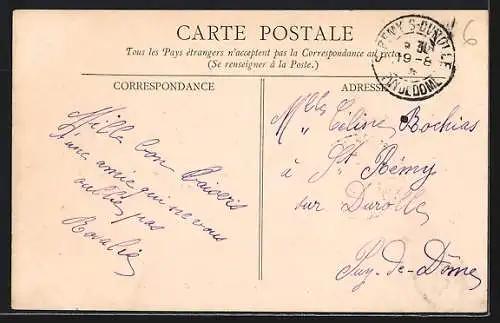 CARTE POSTALE
Tous les Pays étrangers n'acceptent pas la Correspondance au recto
(Se renseigner à la Poste.)
CORRESPONDANCE
Mille bon Baisers
d'une amie qui ne vous
oublie pas
Rosalie
ADRESSE
Mlle Céline Rochias
à St Rémy
sur Durolle
Puy-de-Dôme
ST REMY S-DUROLLE
19-8
PUY DE DOME
6